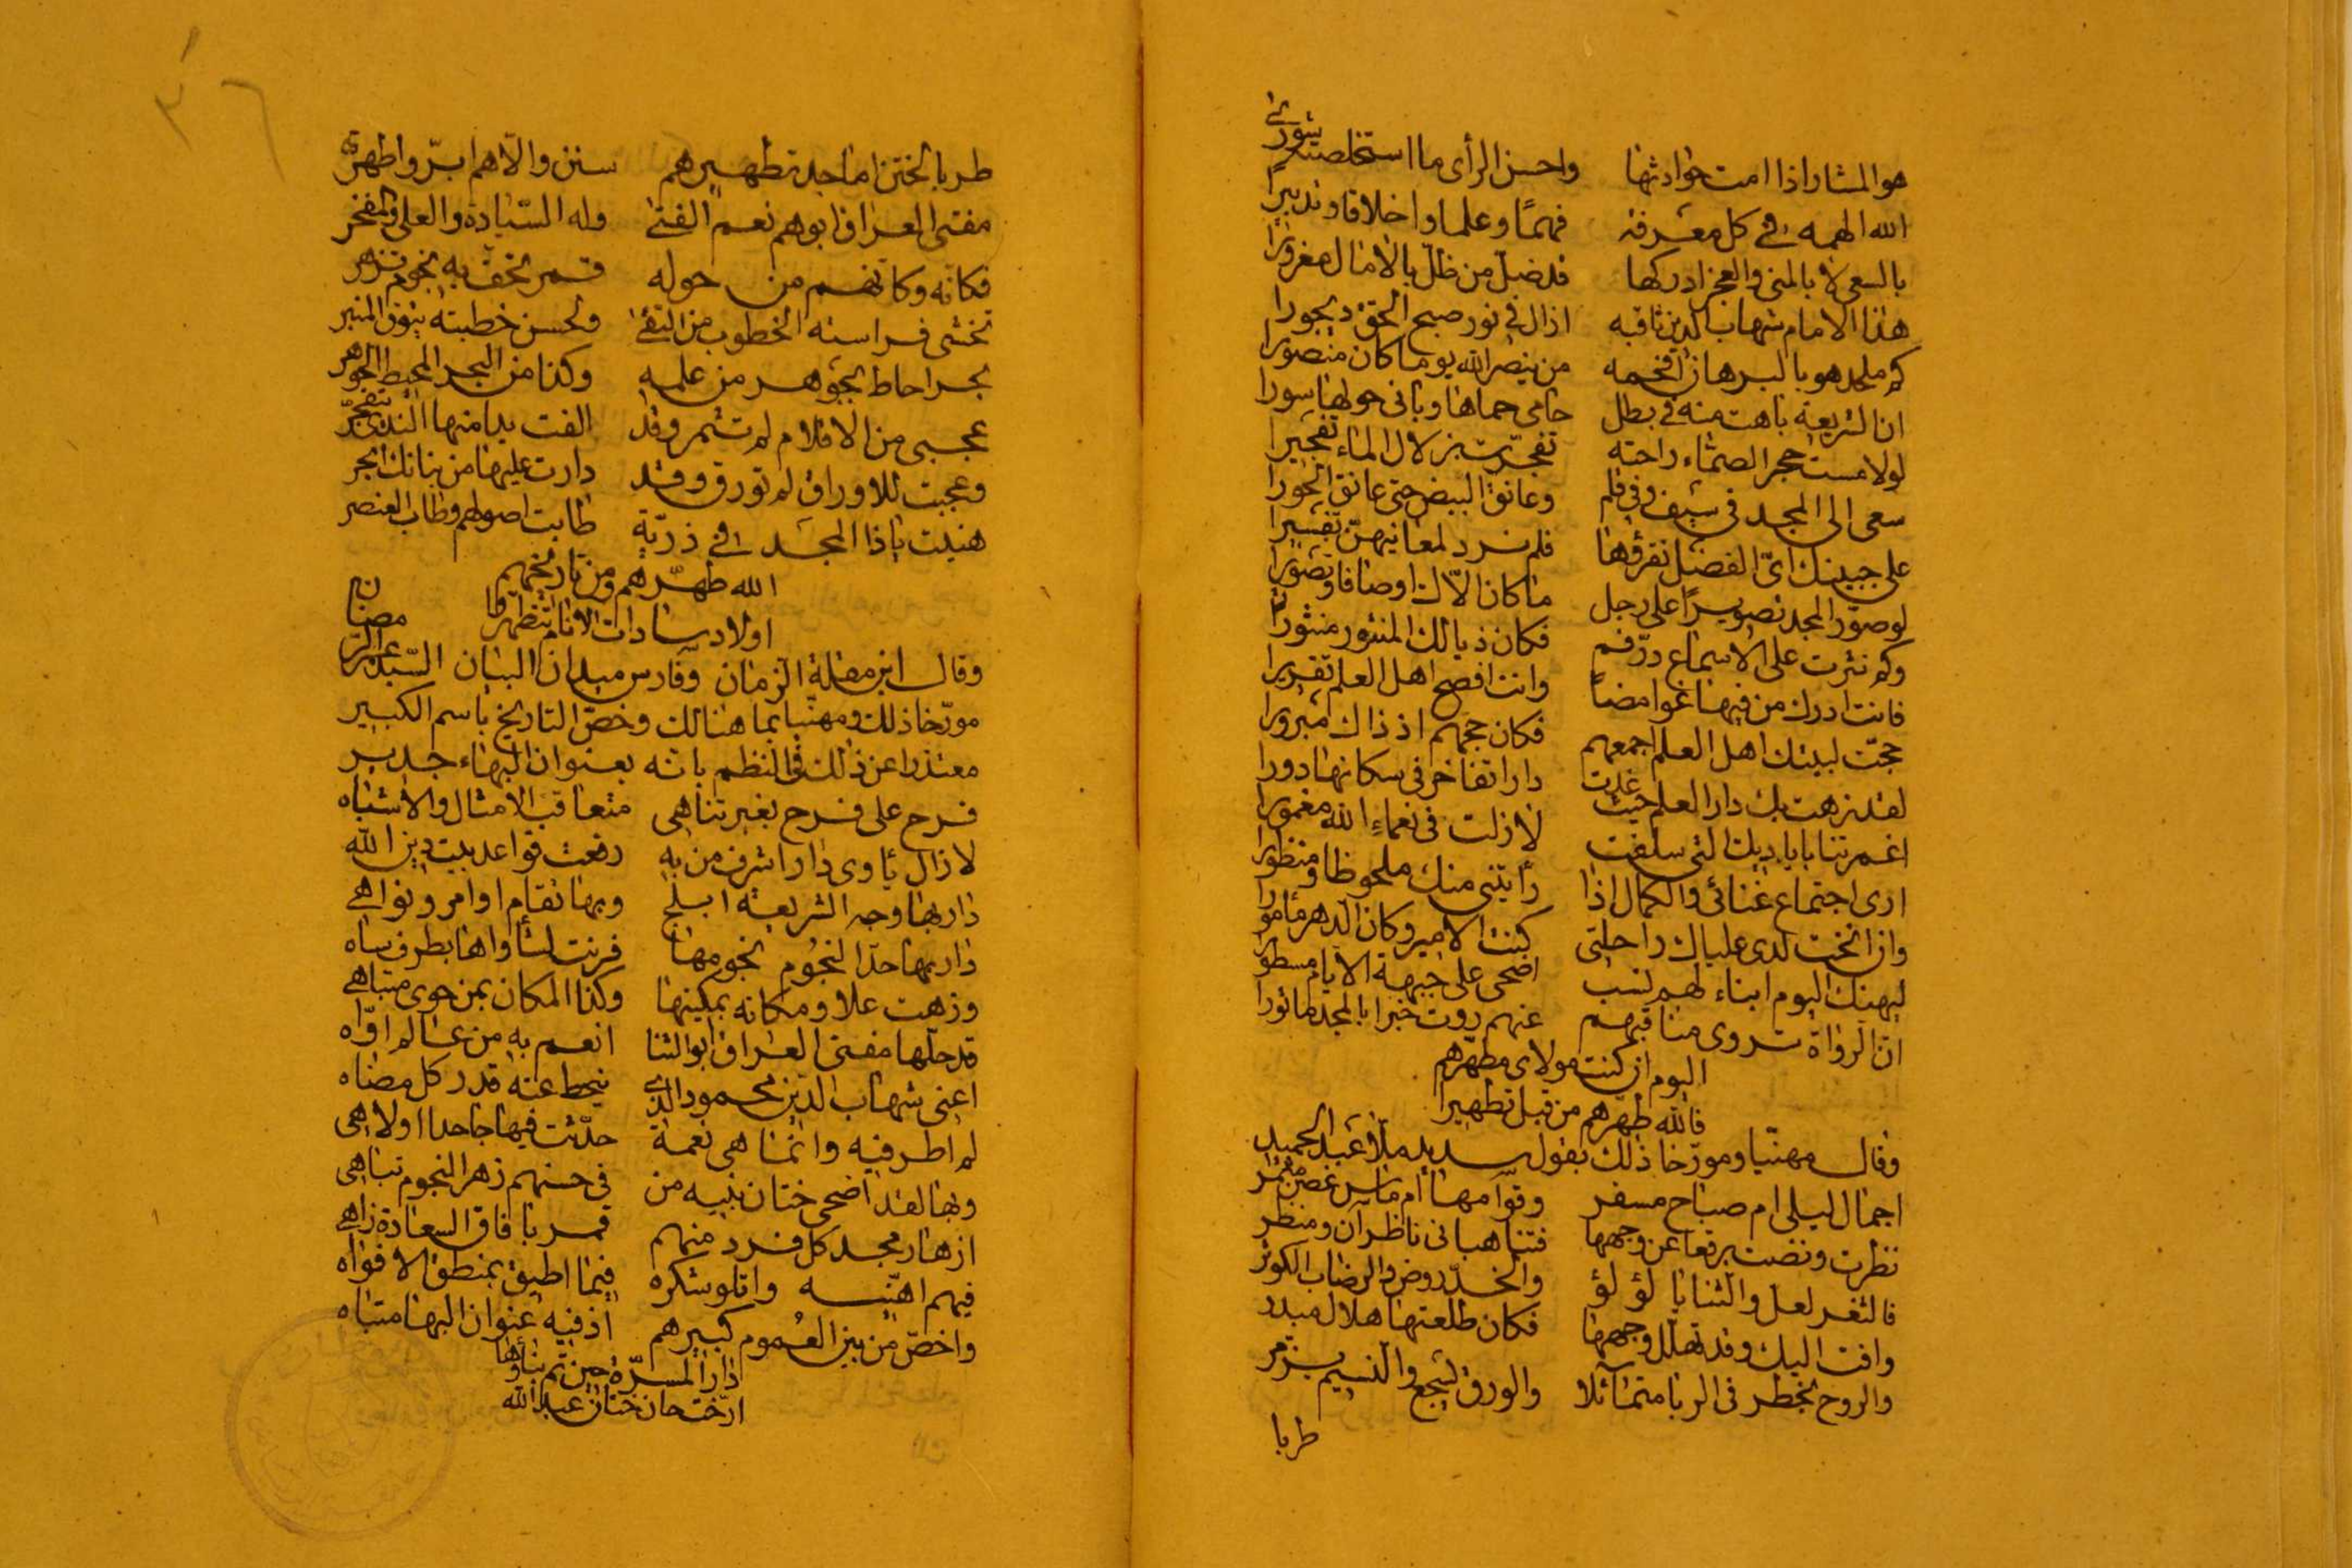 هو المشار اذا امت حوادثها واحسن الرأى ما استخلصته شورى
الله الهمه في كل معرفة فهمًا وعلما واخلاقا وتدبيرًا
بالسعى لا بالمنى والعجز ادركها قد ضل من ظل بالآمال مغرورا
هذا الامام شهاب الدين ثاقبه اذال في نور صبح الحق ديجورا
كم ملحد هو بالبرهان افحمه من ينصر الله يوما كان منصورا
ان الشريعة باهت منه في بطل حامى حماها وبانى حولها سورا
لو لامست حجر الصماء راحته تفجرت بزلال الماء تفجيرا
سعى الى المجد في سيف وفي قلم وعانق البيض حتى عانق الحورا
على جبينك اىّ الفضل نقرؤها فلم نرد لمعانيهنّ تفسيرا
لو صوّر المجد تصويرًا على رجل ما كان الّاك اوصافا وتصويرا
وكم نثرت على الاسماع درّ فم فكان ذيالك المنثور منثورا
فانت ادرك من فيها غوامضاً وانت افصح اهل العلم تقريرا
حجّت لبيتك اهل العلم اجمعهم فكان حجهم اذ ذاك مبرورا
لقد زهت بك دار العلم حيث غدت دارا تفاخر في سكانها دورا
اغمرتنا باياديك التى سلفت لا زلت في نعماء الله مغمورا
ارى اجتماع غنائى والكمال اذا رأيتنى منك ملحوظا ومنظورا
وان انخت لدى علياك راحلتى كنت الامير وكان الدهر مأمورا
ليهنك اليوم ابناء لهم نسب اضحى على جبهة الايام مسطورا
انّ الرواة تروى مناقبهم عنهم روت خبرا بالمجد مأثورا
اليوم ان كنت مولاى مطهّرهم
فالله طهّرهم من قبل تطهيرا
وقال مهنّيا ومورّخا ذلك بقول سديد ملا عبد الحميد
اجمال ليلى ام صباح مسفر وقوامها ام ماس غصن مثمر
نظرت ونضت برقعا عن وجهها فتناهبانى ناظران ومنظر
فالثغر لعل والثنايا لؤلؤ والخدّ روض والرضاب الكوثر
وافت اليك وقد تهلل وجهها فكان طلعتها هلال مبدر
والروح تخطر في الربا متمائلا والورق تسجع والنسيم يزمر
طربا
٣٦
طربا بختن اماجد تطهيرهم سنن والّا هم ابرّ واطهر
مفتى العراق ابوهم نعم الفتى وله السّيادة والعلى والمفخر
فكانه وكانهم من حوله قمر تحف به نجوم تزهر
تخشى فراسته الخطوب من التقى ولحسن خطبته يتوق المنبر
بحر احاط بجوهر من علمه وكذا من البحر المحيط الجوهر
عجبى من الاقلام لم تثمر وقد الفت يدا منها الندى يتفجّر
وعجبت للاوراق لم تورق وقد دارت عليها من بنانك ابحر
هنيت ياذا المجد في ذريّة طابت اصولهم وطاب العنصر
الله طهّرهم ومن تاريخهم
اولاد سادات الانام تطهروا
وقال ابن مقلة الزمان وفارس ميدان البيان السّيد عبد الرزاق
مورّخا ذلك ومهنّيا بما هنالك وخصّ التاريخ باسم الكبير
معتذرا عن ذلك في النظم بانه بعنوان البهاء جدير
فرح على فرح بغير تناهى متعاقب الامثال والاشباه
لا زال يأوى دارا شرف من به رفعت قواعد بيت دين الله
دار بها وجه الشريعة ابلج وبها تقام اوامر ونواهى
دار بها حدّا النجوم نجومها فرنت لشأواها بطرف ساه
وزهت علا ومكانه بمكينها وكذا المكان بمن حوى متباهى
قد حلّها مفتى العراق ابو الثنا انعم به من عالم اوّاه
اعنى شهاب الدّين محمود الذى ينحط عنه قدر كل مضاه
لم اطر فيه وانما هى نعمة حدّثت فيها جاحدا او لاهى
وبها لقد اضحى ختان بنيه من في حسنهم زهر النجوم تباهى
ازهار مجد كل فرد منهم قمر بآفاق السعادة زاهى
فيهم اهنّيه واتلو شكره فيما اطيق بمنطق الافواه
واخصّ من بين العموم كبيرهم اذ فيه عنوان البها متباه
ادار المسرّة حين تم بناؤها
ارّخت حان ختان عبد الله